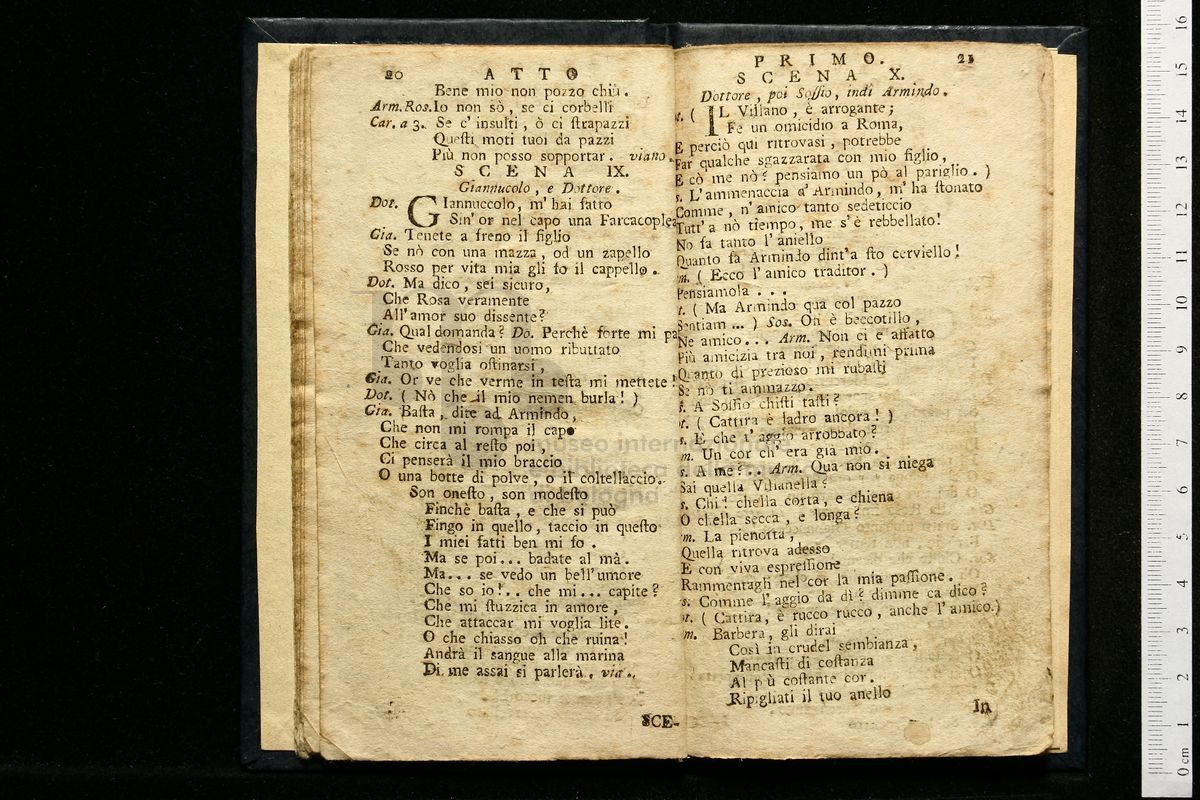 20 ATTO
Bene mio non pozzo chiù.
Arm.Ros. Io non sò, se ci corbelli
Car. a 3. Se c' insulti, ò ci ſtrapazzi
Queſti moti tuoi da pazzi
Più non posso sopportar. viano.
SCENA IX.
Giannucolo, e Dottore.
Dot. GIannuccolo, m' hai fatto
Sin' or nel capo una Farcacoplea
Gia. Tenete a freno il figlio
Se nò con una mazza, od un zapello
Rosso per vita mia gli fo il cappello.
Dot. Ma dico, sei sicuro,
Che Rosa veramente
All' amor suo dissente?
Gia. Qual domanda? Do. Perchè forte mi pa
Che vedendosi un uomo ributtato
Tanto voglia oſtinarsi,
Gia. Or ve che verme in teſta mi mettete!
Dot. ( Nò che il mio nemen burla! )
Gia. Baſta, dite ad Armindo,
Che non mi rompa il capo
Che circa al reſto poi,
Ci penserà il mio braccio
O una botte di polve, o il coltellaccio.
Son oneſto, son modeſto
Finchè baſta, e che si può
Fingo in quello, taccio in queſto
I miei fatti ben mi fo.
Ma se poi... badate al mà.
Ma... se vedo un bell' umore
Che so io!.. che mi... capite?
Che mi ſtuzzica in amore,
Che attaccar mi voglia lite.
O che chiasso oh che ruina!
Andrà il sangue alla marina
Di me assai si parlerà. via.
SCE-
PRIMO. 21
SCENA X.
Dottore, poi Soſſio, indi Armindo.
t. ( IL Villano, è arrogante;
Fe un omicidio a Roma,
E perciò qui ritrovasi, potrebbe
Far qualche sgazzarata con mio figlio,
E cò me nò? pensiamo un pò al pariglio. )
s. L' ammenaccia d' Armindo, m' ha ſtonato
Comme, n' amico tanto sedeticcio
Tutt' a nò tiempo, me s' è rebbellato!
No fa tanto l' aniello
Quanto fa Armindo dint' a ſto cerviello!
m. ( Ecco l' amico traditor. )
Pensiamola...
t. ( Ma Armindo qua col pazzo
Sentiam... ) Sos. Oh è beccotillo,
Ne amico... Arm. Non ci è affatto
Più amicizia tra noi, rendimi prima
Quanto di prezioso mi rubaſti
Se nò ti ammazzo.
s. A Soſſio chiſti taſti?
t. ( Cattira è ladro ancora! )
s. E che t' aggio arrobbato?
m. Un cor ch' era già mio.
s. A me?.. Arm. Qua non si niega
Sai quella Villanella?
s. Chi! chella corta, e chiena
O chella secca, e longa?
m. La pienotta,
Quella ritrova adesso
E con viva espreſſione
Rammentagli nel cor la mia paſſione.
s. Comme l' aggio da dì? dimme ca dico?
t. ( Cattira, è rucco rucco, anche l' amico.)
m. Barbera, gli dirai
Così in crudel sembianza,
Mancaſti di coſtanza
Al più coſtante cor.
Ripigliati il tuo anello
In